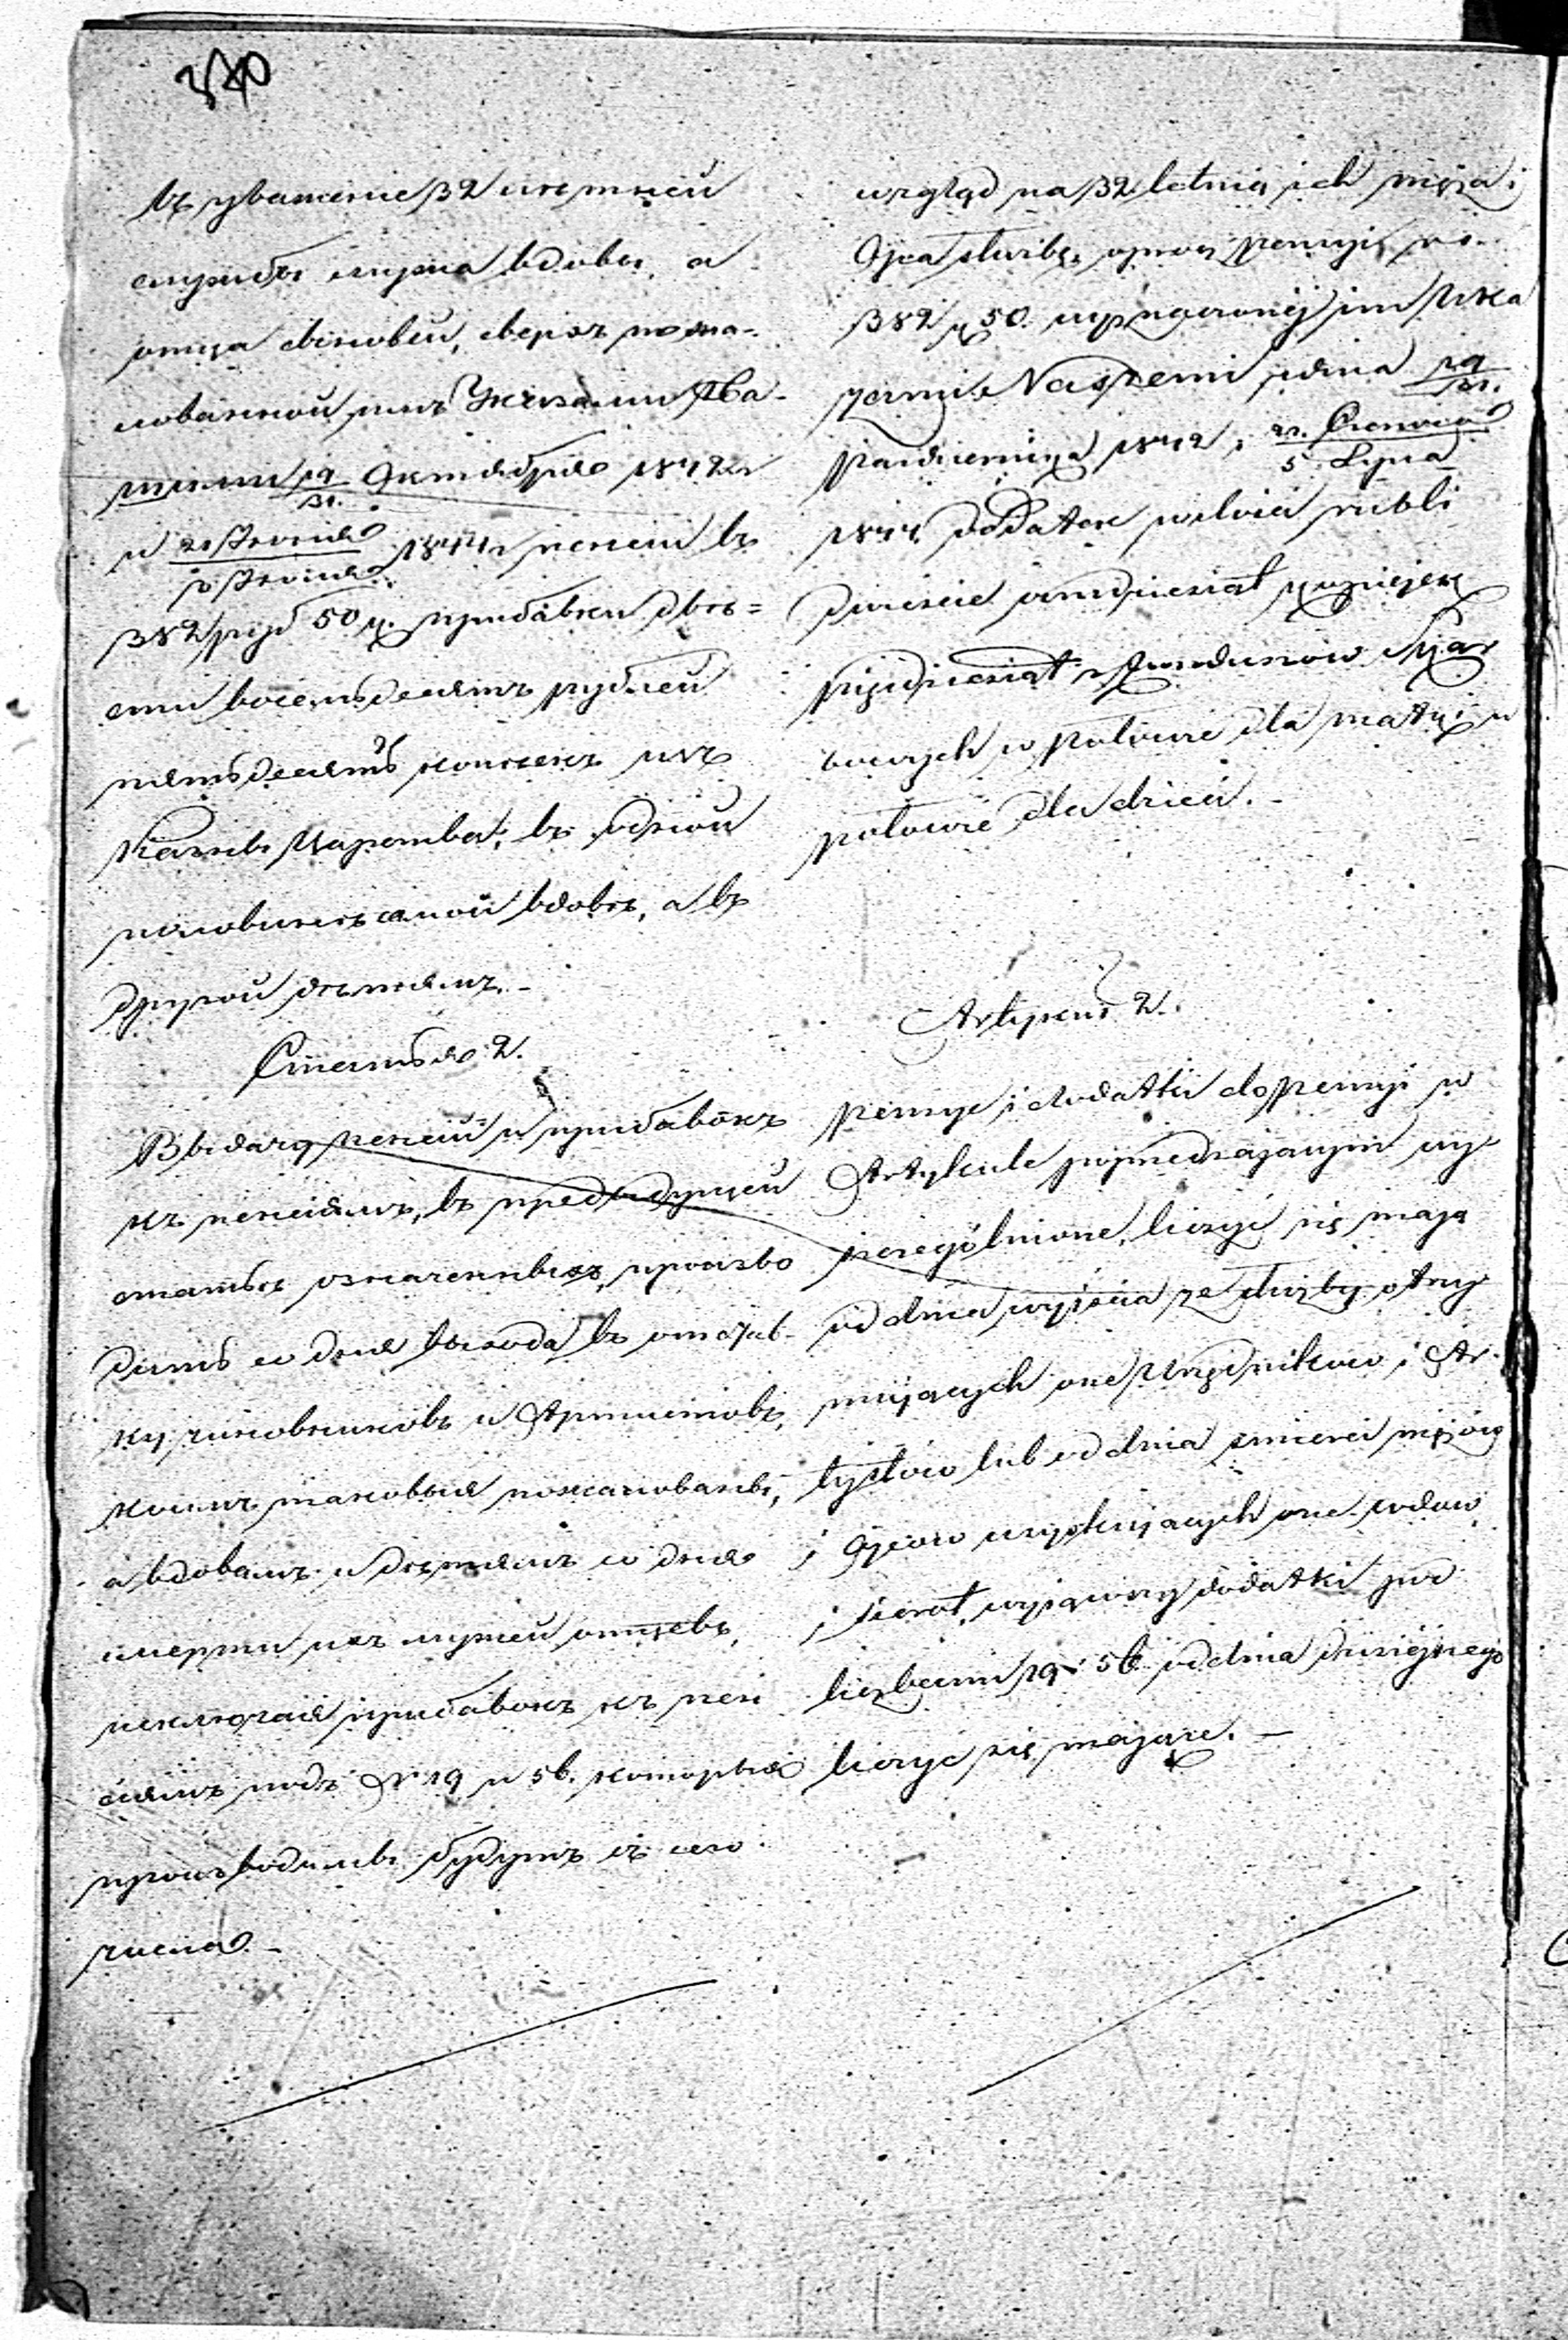 340
въ уваженіе 32 лѣтней
службы мужа вдовы, а
отца дѣтовей, сверхъ пожа-
лованной имъ Указами На-
шими 19/31. Октября 1842 г
и 21 Іюня/3 Іюля 1844 г пенсіи въ
382 руб 50 к. прибавки двѣ=
сти восемьдесятъ рублей
пятьдесятъ копѣекъ изъ
Казны Царства, въ одной
половинѣ самой вдовѣ, а въ
другой дѣтямъ. -
Статья 2.
Выдачу пенсій и прибавокъ
къ пенсіямъ, въ предъидущей
статьѣ означенныхъ, произво
дить со дня выхода въ отстав-
ку чиновниковъ и Артистовъ,
коимъ таковыя пожалованы,
а вдовамъ и дѣтямъ со дня
смерти ихъ мужей отцевъ,
исключая прибавокъ къ пен
сіямъ подъ № 19 и 56. которыя
производимы будутъ съ сего
числа. -
wzgląd na 32 letnią ich męża i
Ojca służbę, oprócz pensyi rs.
382 k 50. wyznaczonej im Uka
zami Naszemi z dnia 19/31.
Października 1842 i 21. Czerwca/5 Lipca
1844 dodatek w ilości rubli
dwieście ośmdziesiąt kopiejek
pięćdziesiąt z funduszów Skar
bowych w połowie dla matki w
połowie dla dzieci. -
Artykuł 2.
Pensye i dodatki do pensyi w
Artykule poprzedzającym wy
szczególnione, liczyć się mają
od dnia wyjścia ze służby otrzy
mujących one Urzędników i Ar-
tystów lub od dnia śmierci mężów
i Ojców uzyskujących one wdów
i sierot, wyjąwszy dodatki pod
liczbami 19 i 56 od dnia dzisiejszego
liczyć się mające. -